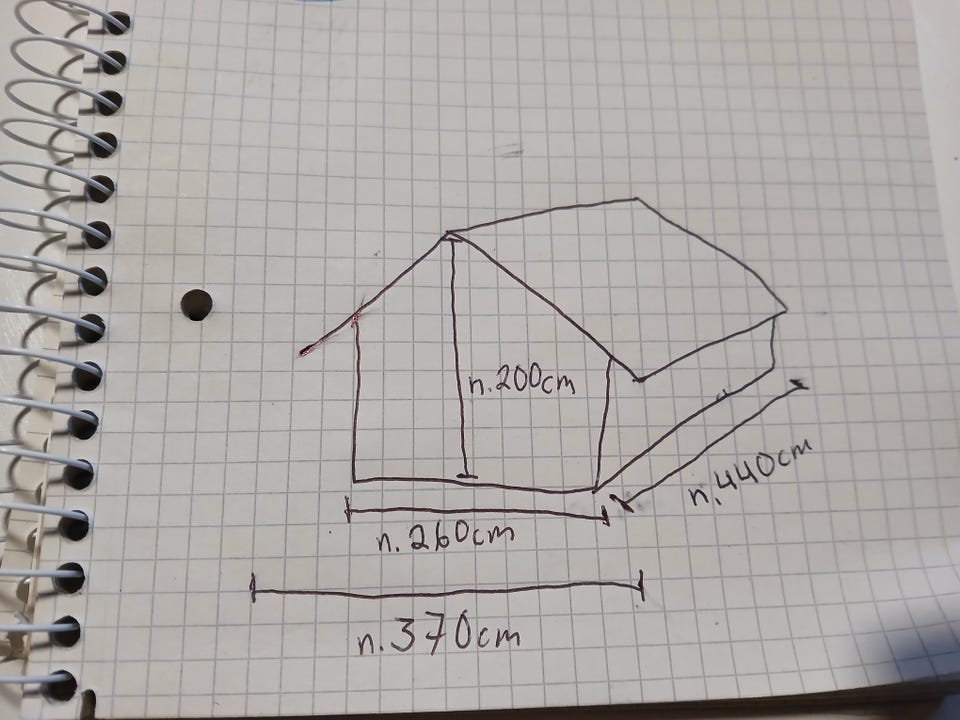 n.200cm
n.440cm
n.260cm
n.370cm